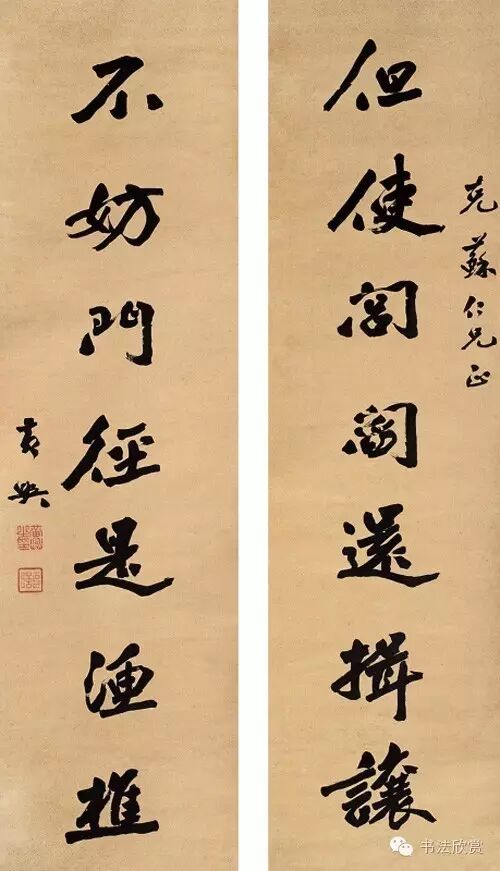 克蘇仁兄正
但使閭閻還揖讓
不妨門徑是漁樵
黃興
书法欣赏